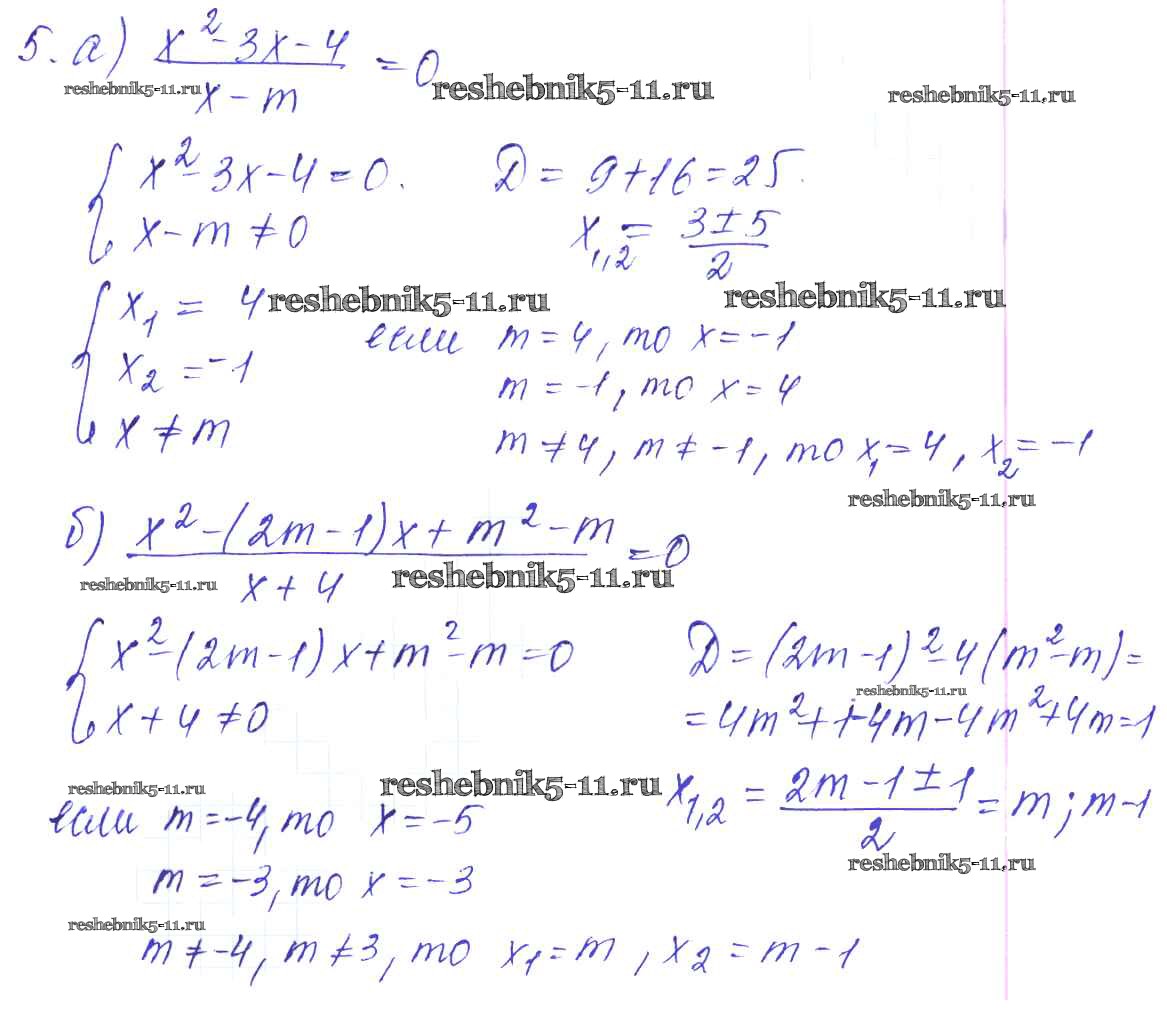 5. а) (x² - 3x - 4)/(x - m) = 0
reshebnik5-11.ru reshebnik5-11.ru reshebnik5-11.ru
{ x² - 3x - 4 = 0. D = 9 + 16 = 25.
x - m ≠ 0 x₁,₂ = (3 ± 5)/2
{ x₁ = 4 reshebnik5-11.ru reshebnik5-11.ru
если m = 4, то x = -1
x₂ = -1
m = -1, то x = 4
x ≠ m m ≠ 4, m ≠ -1, то x₁ = 4, x₂ = -1
reshebnik5-11.ru
б) (x² - (2m - 1)x + m² - m)/(x + 4) = 0
reshebnik5-11.ru reshebnik5-11.ru
{ x² - (2m - 1)x + m² - m = 0 D = (2m - 1)² - 4(m² - m) =
reshebnik5-11.ru
x + 4 ≠ 0 = 4m² + 1 - 4m - 4m² + 4m = 1
reshebnik5-11.ru reshebnik5-11.ru
x₁,₂ = (2m - 1 ± 1)/2 = m; m - 1
если m = -4, то x = -5
reshebnik5-11.ru
m = -3, то x = -3
reshebnik5-11.ru
m ≠ -4, m ≠ 3, то x₁ = m, x₂ = m - 1